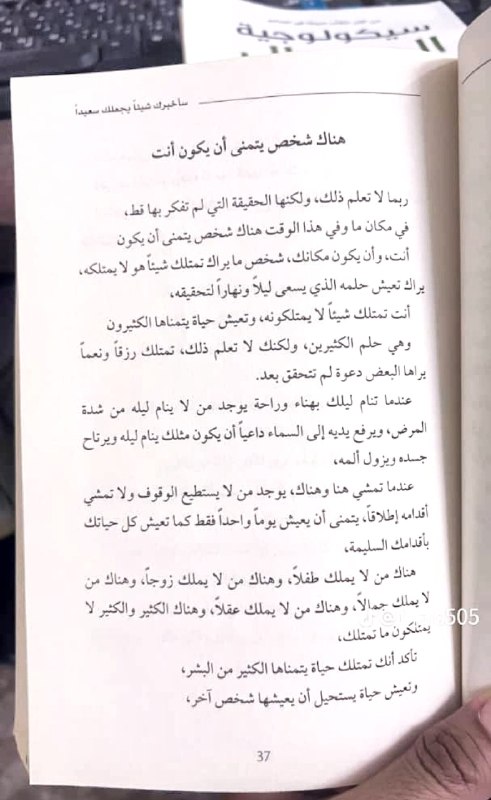 سيكولوجية
سأخبرك شيئاً يجعلك سعيداً
هناك شخص يتمنى أن يكون أنت
ربما لا تعلم ذلك، ولكنها الحقيقة التي لم تفكر بها قط،
في مكان ما وفي هذا الوقت هناك شخص يتمنى أن يكون
أنت، وأن يكون مكانك، شخص ما يراك تمتلك شيئاً هو لا يمتلكه،
يراك تعيش حلمه الذي يسعى ليلاً ونهاراً لتحقيقه،
أنت تمتلك شيئاً لا يمتلكونه، وتعيش حياة يتمناها الكثيرون
وهي حلم الكثيرين، ولكنك لا تعلم ذلك، تمتلك رزقاً ونعماً
يراها البعض دعوة لم تتحقق بعد.
عندما تنام ليلك بهناء وراحة يوجد من لا ينام ليله من شدة
المرض، ويرفع يديه إلى السماء داعياً أن يكون مثلك ينام ليله ويرتاح
جسده ويزول ألمه،
عندما تمشي هنا وهناك، يوجد من لا يستطيع الوقوف ولا تمشي
أقدامه إطلاقاً، يتمنى أن يعيش يوماً واحداً فقط كما تعيش كل حياتك
بأقدامك السليمة،
هناك من لا يملك طفلاً، وهناك من لا يملك زوجاً، وهناك من
لا يملك جمالاً، وهناك من لا يملك عقلاً، وهناك الكثير والكثير لا
يمتلكون ما تمتلك،
تأكد أنك تمتلك حياة يتمناها الكثير من البشر،
وتعيش حياة يستحيل أن يعيشها شخص آخر،
37
505